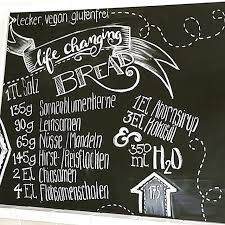 Lecker, vegan, glutenfrei
life changing
BREAD
1 TL Salz
135g Sonnenblumenkerne
90g Leinsamen
65g Nüsse/Mandeln
145g Hirse-/Reisflocken
2 EL Chiasamen
4 EL Flohsamenschalen
1 EL Ahornsirup
3 EL Kokosöl
& 350 ml H2O
175°